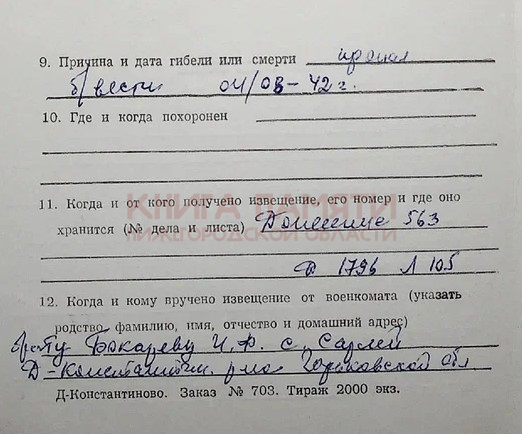 9. Причина и дата гибели или смерти пропал
б/вести 04/08-42 г.
10. Где и когда похоронен
КНИГА ПАМЯТИ
НИЖЕГОРОДСКОЙ ОБЛАСТИ
11. Когда и от кого получено извещение, его номер и где оно
хранится (№ дела и листа) Донесение 563
Д 1796 Л 105
12. Когда и кому вручено извещение от военкомата (указать
родство, фамилию, имя, отчество и домашний адрес)
брату Бокареву И. Ф. с. Сарлей
Д-Константин. р-на Горьковской обл
Д-Константиново. Заказ № 703. Тираж 2000 экз.